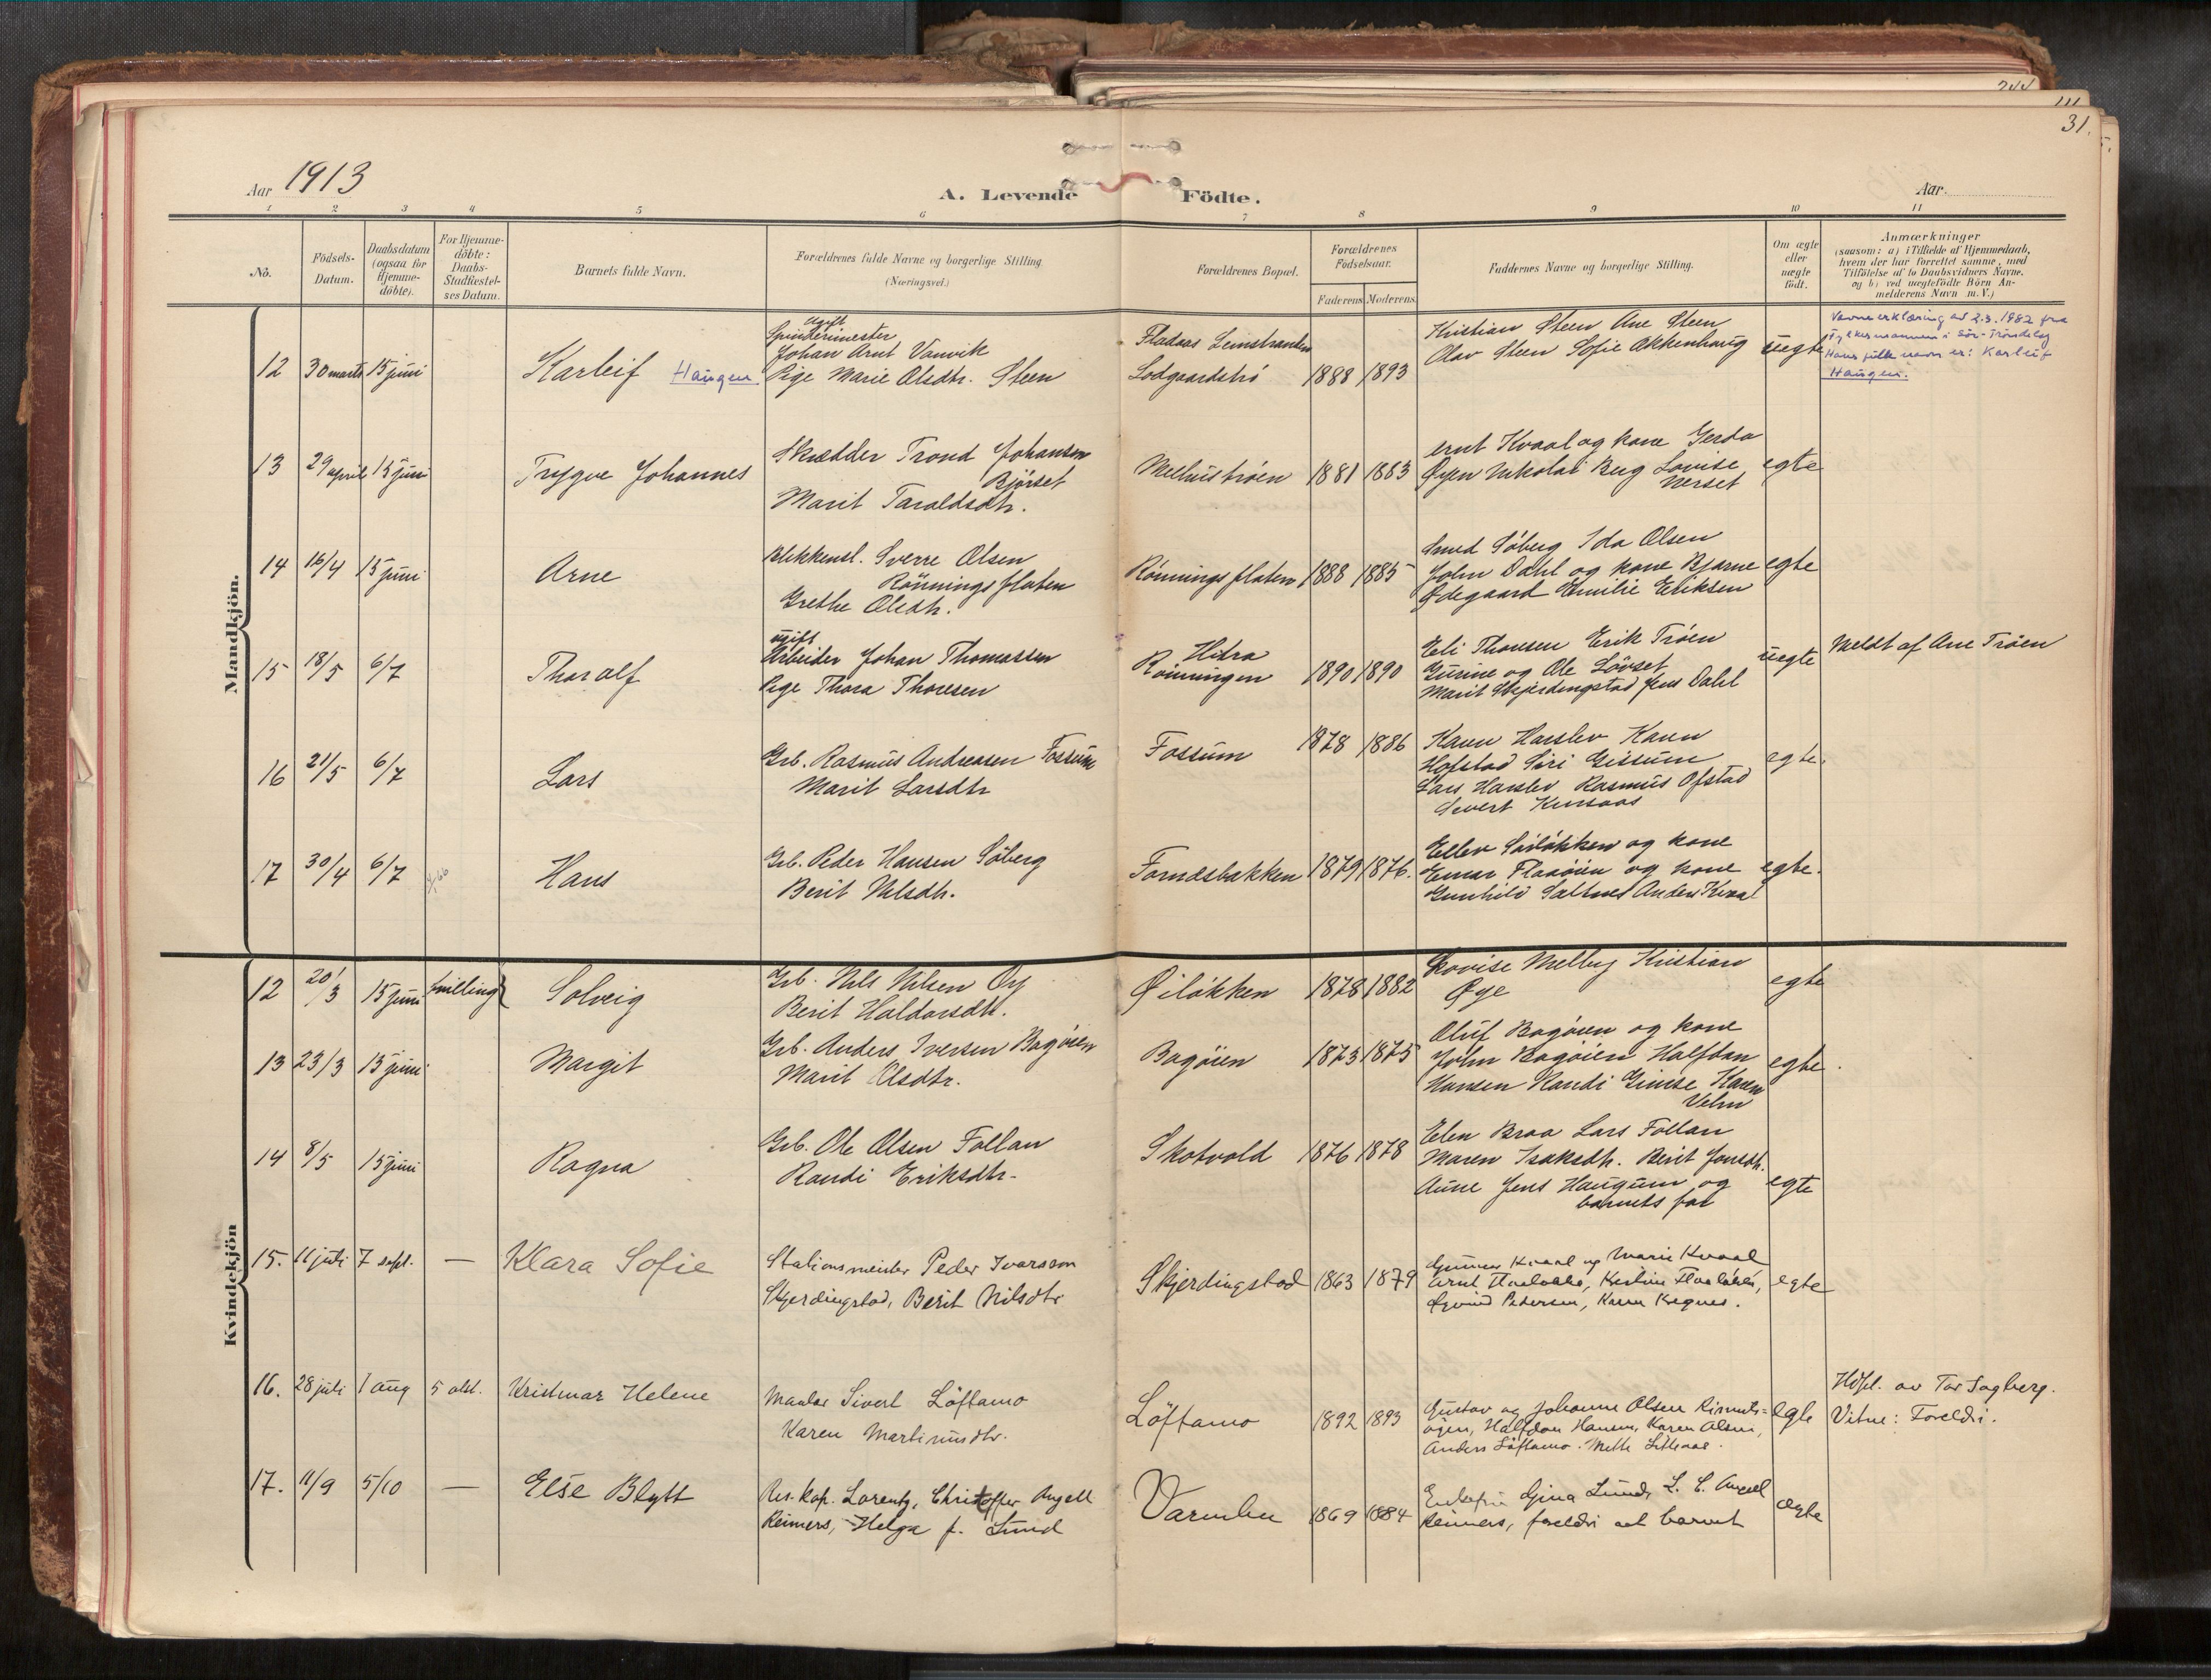 31.
Aar 1913
A. Levende Fødte.
Aar
1 2 3 4 5 6 7 8 9 10 11
No.
Fødsels-
Datum.
Daabsdatum
(ogsaa for
Hjemme-
døbte).
For Hjemme-
døbte:
Daabs-
Stadfæstel-
ses Datum.
Barnets fulde Navn.
Forældrenes fulde Navne og borgerlige Stilling
(Næringsvei.)
Forældrenes Bopæl.
Forældrenes
Fødselsaar.
Faderens Moderens
Faddernes Navne og borgerlige Stilling.
Om ægte
eller
uægte
født.
Anmærkninger
(saasom: a) i Tilfælde af Hjemmedaab,
hvem der har forrettet samme, med
Tilføielse af to Daabsvidners Navne.
og b) ved uægtefødte Børn An-
melderens Navn m. V.)
Mandkjön.
12 30 marts 15 juni Karleif Haugen
ugift
Spinderimester
Johan Arnt Vanvik
Pige Marie Olsdtr. Steen
Fladaas Leinstranden
Lodgaardstrø 1888 1893
Kristian Steen Ane Steen
Olav Steen Sofie Akkenhaug
uegte
Navneerklæring av 2.3.1982 fra
fylkesmannen i Sør-Trøndelag
Hans fulle navn er: Karleif
Haugen.
13 29 april 15 juni Trygve Johannes
Skrædder Trond Johansen
Bjørset
Marit Taraldsdtr.
Melhustrøen 1881 1883
Arnt Kvaal og kone Gerda
Øyen Nikolai Berg Lovise
Nerset
egte
14 16/4 15 juni Arne
Blikkensl. Sverre Olsen
Rönningsflaten
Grethe Olsdtr.
Rönningsflaten 1888 1885
Smed Söberg Ida Olsen
John Dahl og kone Bjarne
Ødegaard Emilie Eriksen
egte
15 18/5 6/7 Thoralf
ugift
Arbeider Johan Thomassen
Pige Thora Thoresen
Hitra
Rönningen 1890 1890
Eli Thonsen Erik Tröen
Gurine og Ole Lövset
Marit Skjerdingstad Jens Dahl
uegte
Meldt af Ane Tröen
16 21/5 6/7 Lars
Grb. Rasmus Andreasen Fossum
Marit Larsdtr
Fossum 1878 1886
Karen Harslev Karen
Hofstad Siri Gissum
Lars Harslev Rasmus Ofstad
Sivert
egte.
17 30/4 6/7 Hans
Grb. Peder Hansen Söberg
Berit Nilsdtr.
Fornesbakken 1879 1876.
Ellev Sörlökken og kone
Einar Flaaöien og kone
Gunhild Saltnes Anders Kvaal
egte.
Kvindekjön
12 20/3 15 juni tvilling Solveig
Grb. Nils Nilsen Øy
Berit Haldorsdtr.
Øilökken 1878 1882
Lovise Melby Kristian
Øye
egte
13 23/3 15 juni Margit
Grb. Anders Iversen Bagöien
Marit Olsdtr.
Bagöien 1873 1875
Oluf Bagöien og kone
John Bagöien Halfdan
Hansen Randi Gimse Karen
Velm
egte.
14 8/5 15 juni Ragna
Grb. Ole Olsen Follan
Randi Eriksdtr.
Skotvold 1876 1878
Elen Braa Lars Follan
Maren Isaksdtr. Berit Jonsdtr.
Aune Jens Haugum og
barnets far
egte
15. 11 juli 7 sept. — Klara Sofie
Stationsmester Peder Ivarsson
Skjerdingstad, Berit Nilsdtr
Skjerdingstad 1863 1879
Gunnar Kvaal og Marie Kvaal
Arnt Flaaløkke, Kristine
Øyvind Pedersen, Karen Kregnes.
egte
16. 28 juli 1 aug 5 okt. Kristmar Helene
Maalar Sivert Löftamo
Karen Martinusdtr.
Löftamo 1892 1893
Gustav og Johanna Olsen
øien, Halfdan Hansen, Karen Olsen,
Anders Löftamo. Mette
egte
Hdpl. av Tor Sagberg.
Vitne: Foreldri.
17. 11/9 5/10 — Else Blytt
Res. Kap. Lorentz Christoffer Angell
Reimers, Helga f. Lund
Varmbu 1869 1884
Enkefru Gina Lund, L. C. Angell
Reimers, foreldri at barnet
ægte